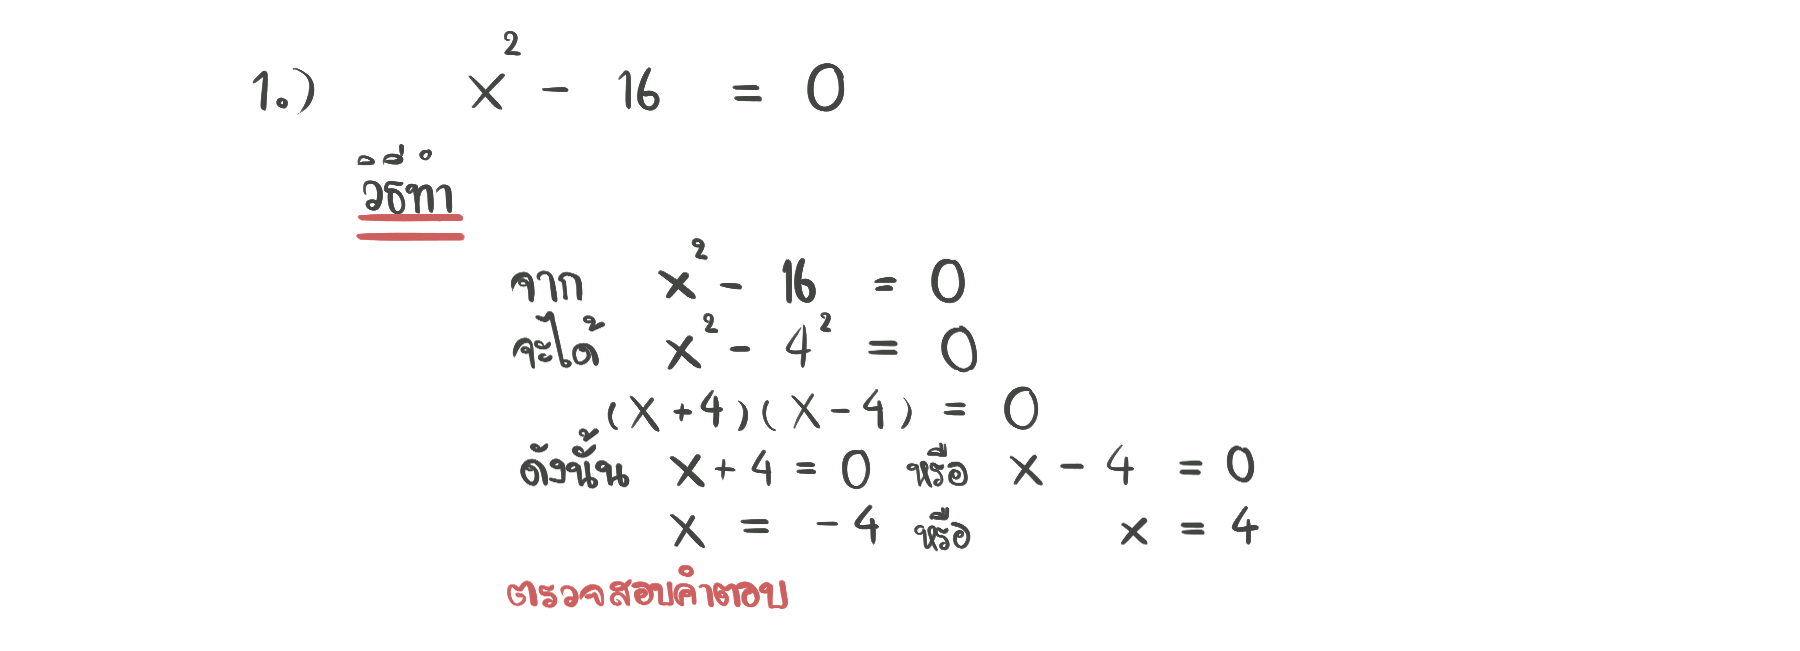 1.) x² - 16 = 0
วิธีทำ
จาก x² - 16 = 0
จะได้ x² - 4² = 0
(x + 4)(x - 4) = 0
ดังนั้น x + 4 = 0 หรือ x - 4 = 0
x = - 4 หรือ x = 4
ตรวจสอบคำตอบ